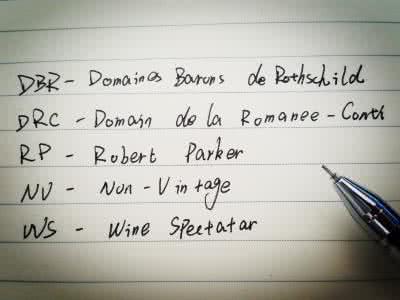 DBR - Domaines Barons de Rothschild
DRC - Domain de la Romanee - Conti
RP - Robert Parker
NV - Non - Vintage
WS - Wine Spectatar